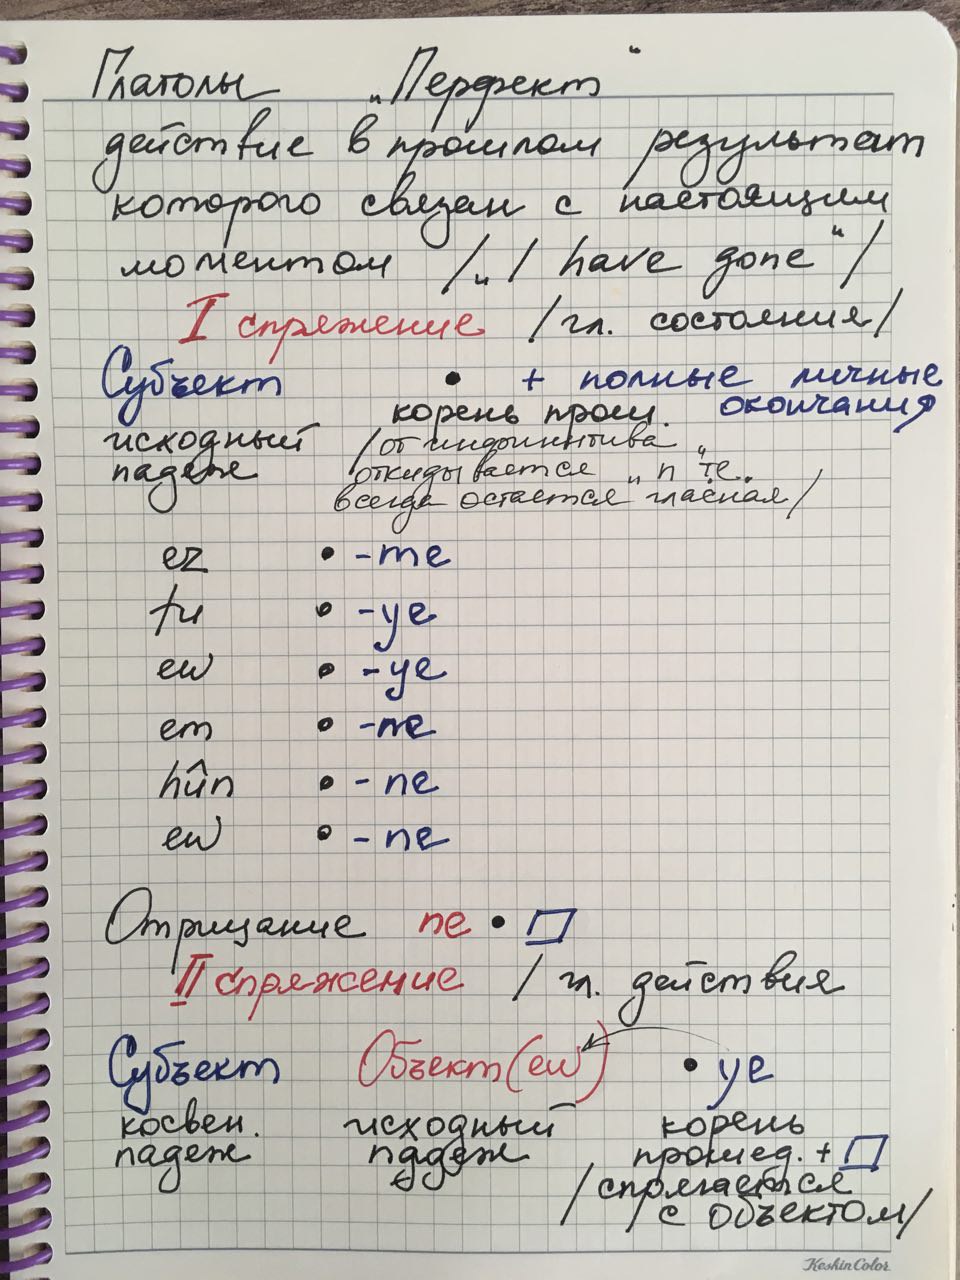 Глаголы „Перфект“
действие в прошлом результат
которого связан с настоящим
моментом /„I have gone“/
I спряжение /гл. состояния/
Субъект • + полные личные
окончания
исходный падеж
корень прош.
/от инфинитива
откидывается „n“ те..
всегда остается гласная/
ez • -me
tu • -ye
ew • -ye
em • -ne
hûn • -ne
ew • -ne
Отрицание ne •
II спряжение / гл. действия
Субъект Объект (ew) • ye
косвен. исходный корень
падеж падеж прошед. +
/спрягается
с объектом/
KeskinColor